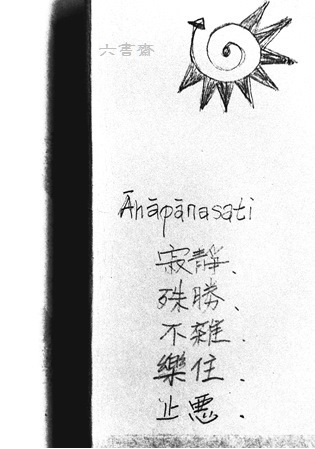 六書齋
Ānāpānasati
寂靜、
殊勝、
不雜、
樂住、
止悪、